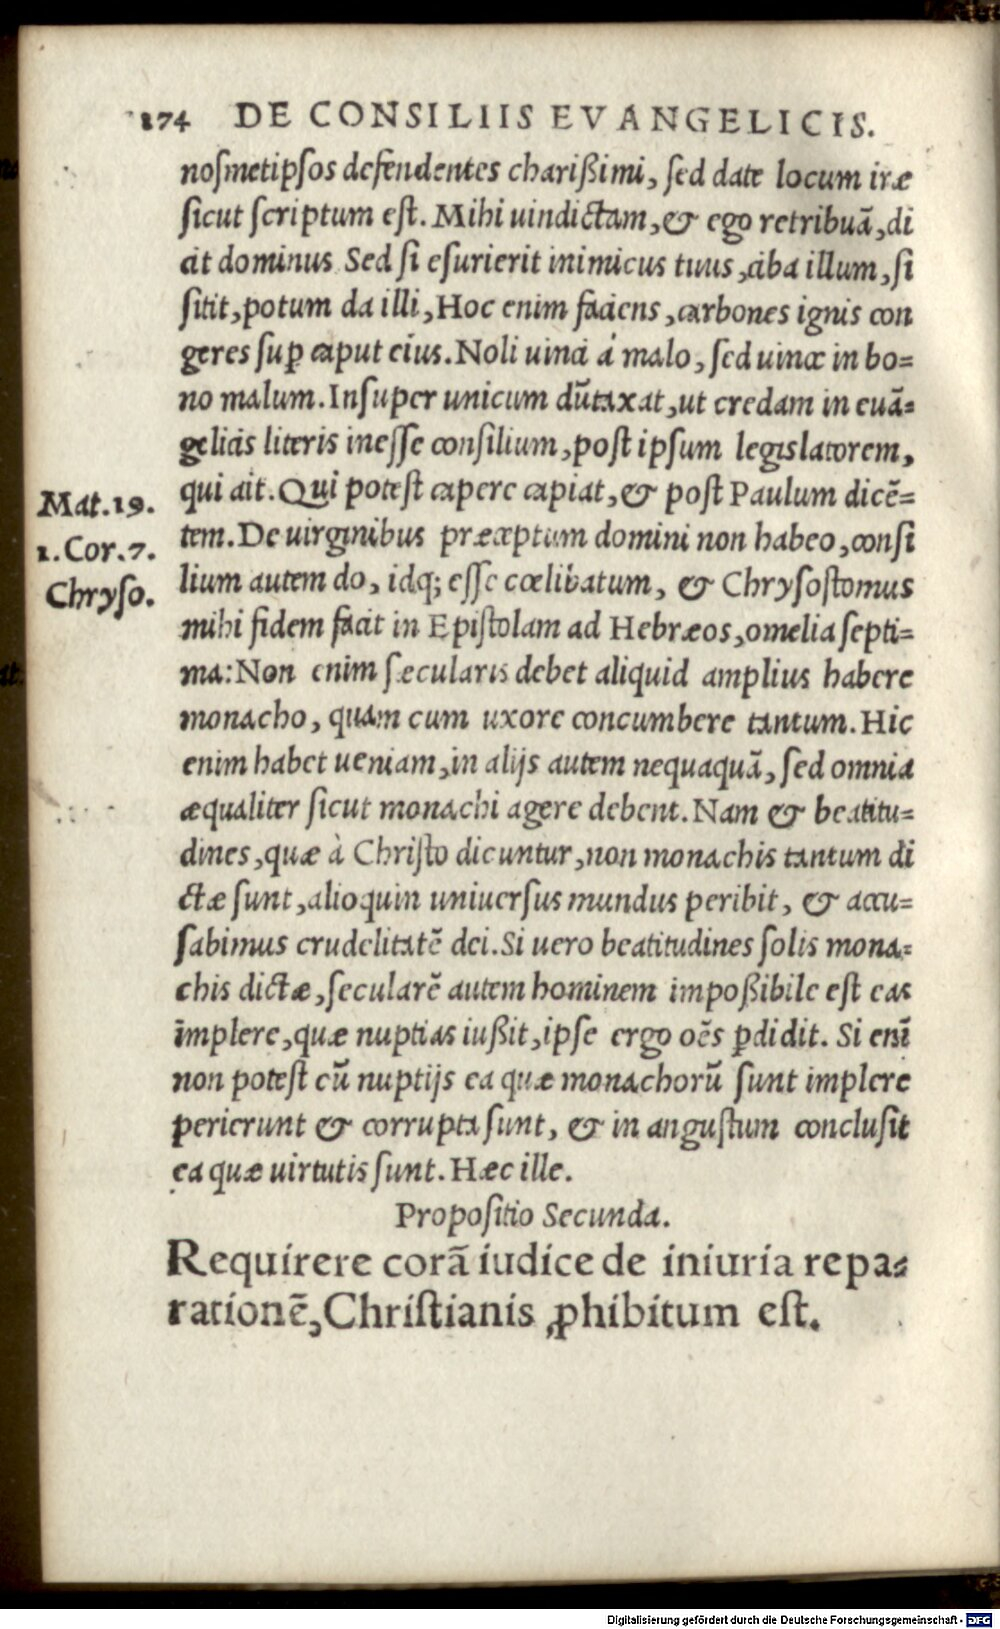 174 DE CONSILIIS EVANGELICIS.
nosmetipsos defendentes charißimi, sed date locum iræ
sicut scriptum est. Mihi uindictam, & ego retribuā, di
cit dominus Sed si esurierit inimicus tuus, ciba illum, si
sitit, potum da illi, Hoc enim faciens, carbones ignis con
geres suꝑ caput eius. Noli uinci á malo, sed uince in bo=
no malum. Insuper unicum dūtaxat, ut credam in euā=
gelicis literis inesse consilium, post ipsum legislatorem,
Mat.19. qui ait. Qui potest capere capiat, & post Paulum dicē=
1. Cor. 7. tem. De uirginibus præceptum domini non habeo, consi
Chryso. lium autem do, idq; esse cœlibatum, & Chrysostomus
mihi fidem facit in Epistolam ad Hebræos, omelia septi=
ma: Non enim secularis debet aliquid amplius habere
monacho, quam cum uxore concumbere tantum. Hic
enim habet ueniam, in alijs autem nequaquā, sed omnia
æqualiter sicut monachi agere debent. Nam & beatitu=
dines, quæ à Christo dicuntur, non monachis tantum di
ctæ sunt, alioquin uniuersus mundus peribit, & accu=
sabimus crudelitatē dei. Si uero beatitudines solis mona=
chis dictæ, secularē autem hominem impoßibile est eas
implere, quæ nuptias iußit, ipse ergo oēs ꝑdidit. Si enī
non potest cū nuptijs ea quæ monachorū sunt implere
perierunt & corrupta sunt, & in angustum conclusit
ea quæ uirtutis sunt. Hæc ille.
Propositio Secunda.
Requirere corā iudice de iniuria repa=
rationē, Christianis ꝓhibitum est.
Digitalisierung gefördert durch die Deutsche Forschungsgemeinschaft - DFG